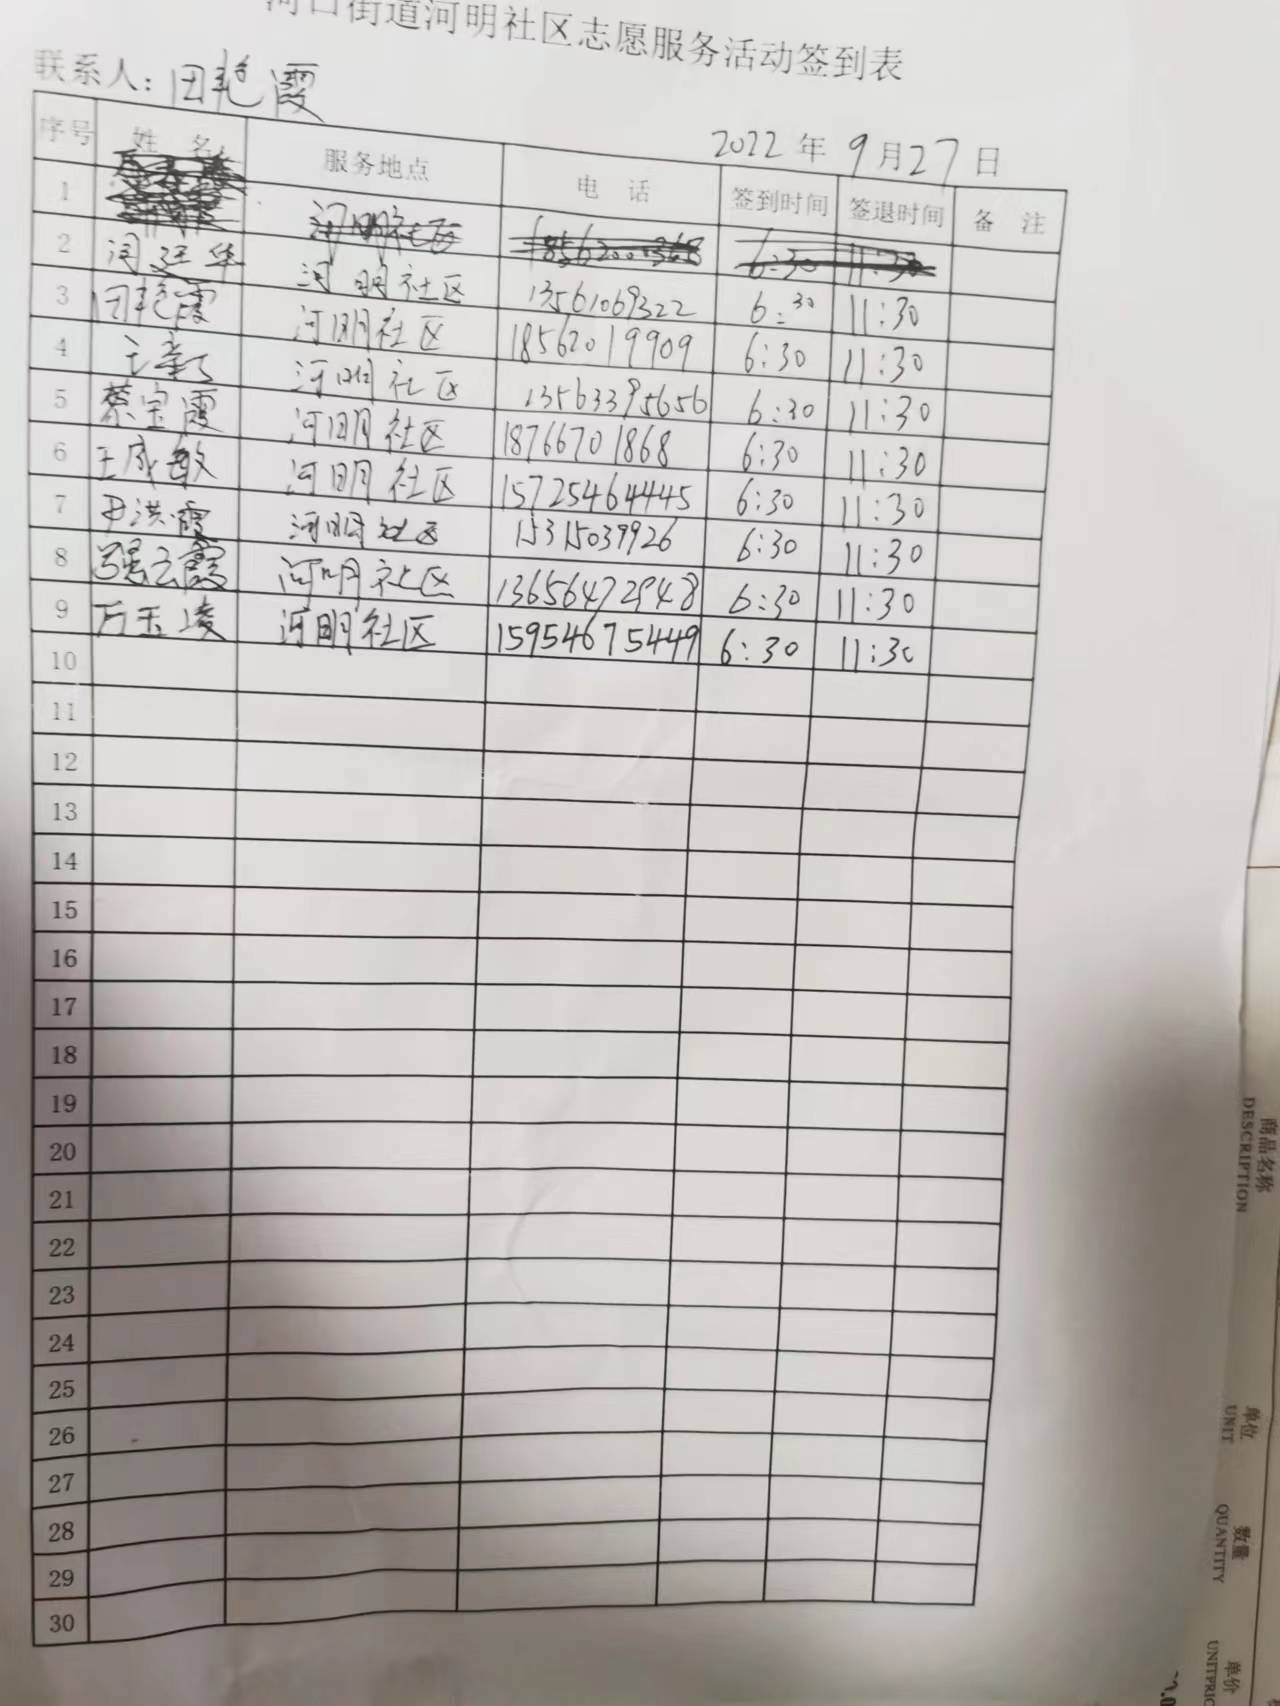 河口街道河明社区志愿服务活动签到表
联系人：田艳霞
2022年9月27日
序号 姓名 服务地点 电话 签到时间 签退时间 备注
1 河明社区 6:30 11:30
2 闫廷华 河明社区 13561069322 6:30 11:30
3 田艳霞 河明社区 18562019909 6:30 11:30
4 河明社区 13563395656 6:30 11:30
5 蔡宝霞 河明社区 18766701868 6:30 11:30
6 王成敏 河明社区 15725464445 6:30 11:30
7 尹洪霞 河明社区 15315039926 6:30 11:30
8 强云霞 河明社区 13656472948 6:30 11:30
9 万玉凌 河明社区 15954675449 6:30 11:30
10
11
12
13
14
15
16
17
18
19
20
21
22
23
24
25
26
27
28
29
30
商品名称
DESCRIPTION
单位
UNIT
数量
QUANTITY
单价
UNITPRIC